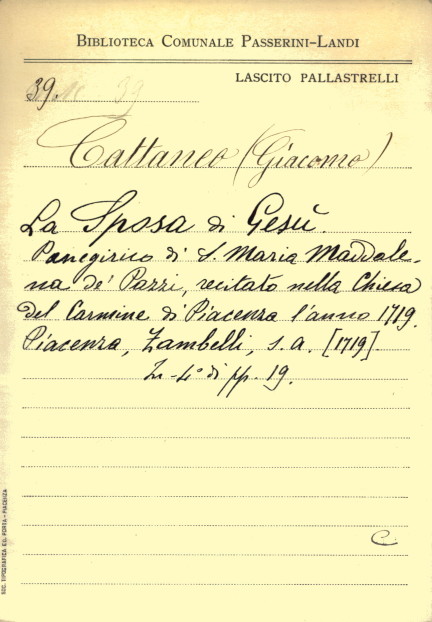 BIBLIOTECA COMUNALE PASSERINI-LANDI
LASCITO PALLASTRELLI
39.
Cattaneo (Giacomo)
La Sposa di Gesù.
Panegirico di S. Maria Maddale-
na de' Pazzi, recitato nella Chiesa
del Carmine di Piacenza l'anno 1719.
Piacenza, Zambelli, s. a. [1719].
In-4° di pp. 19.
C
SOC. TIPOGRAFICA ED. PORTA - PIACENZA